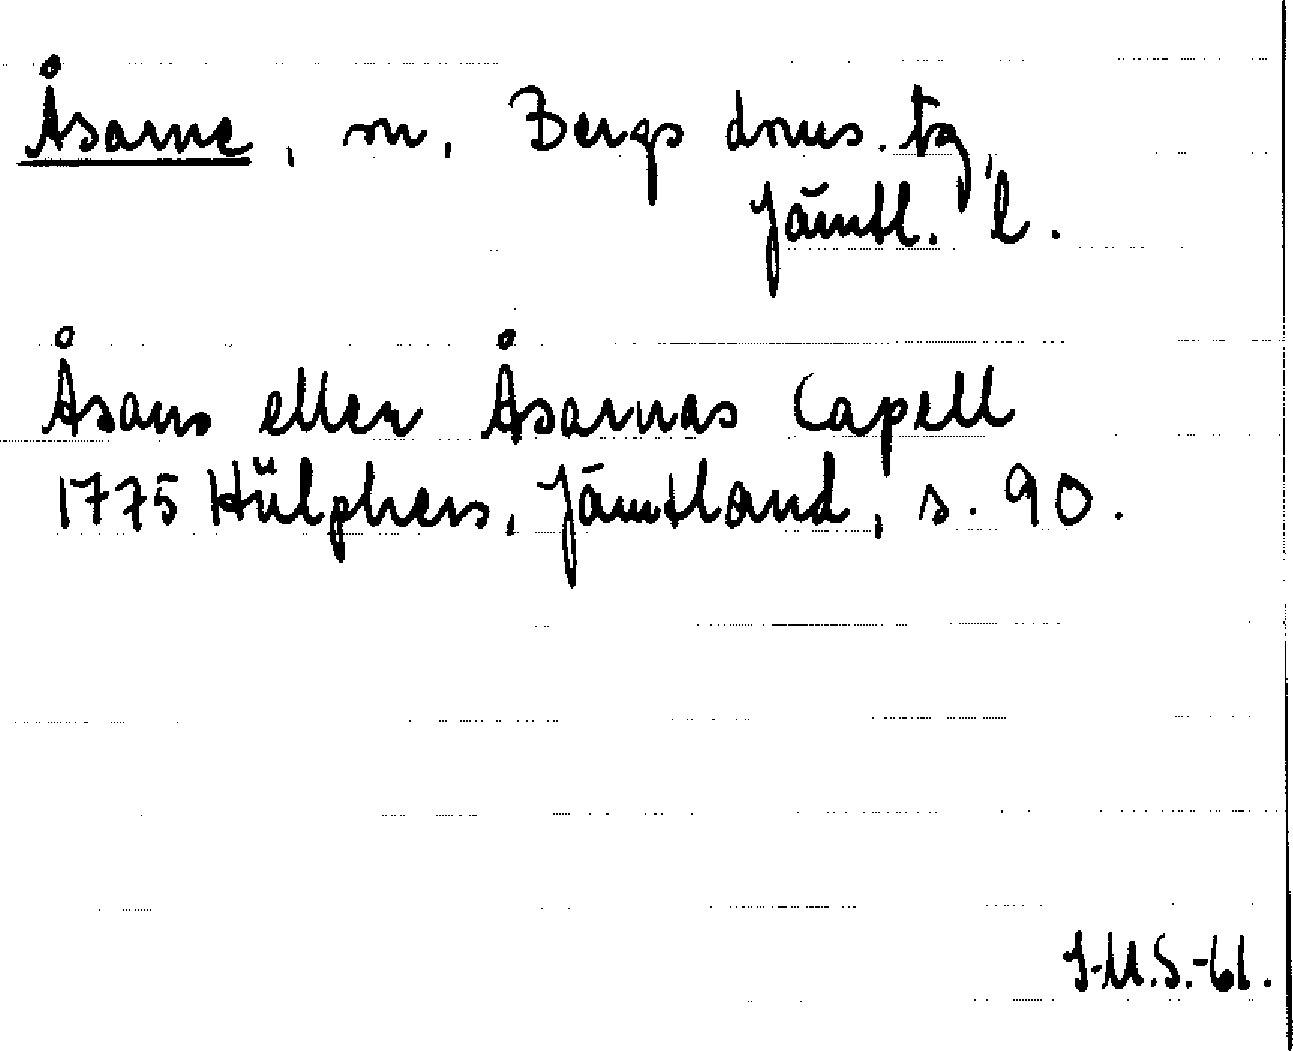 Åsarne, sn, Bergs doms. tg,
Jämtl. l.
Åsans eller Åsarnas Capell
1775 Hülphers, Jämtland, s. 90.
J-M.S.-61.